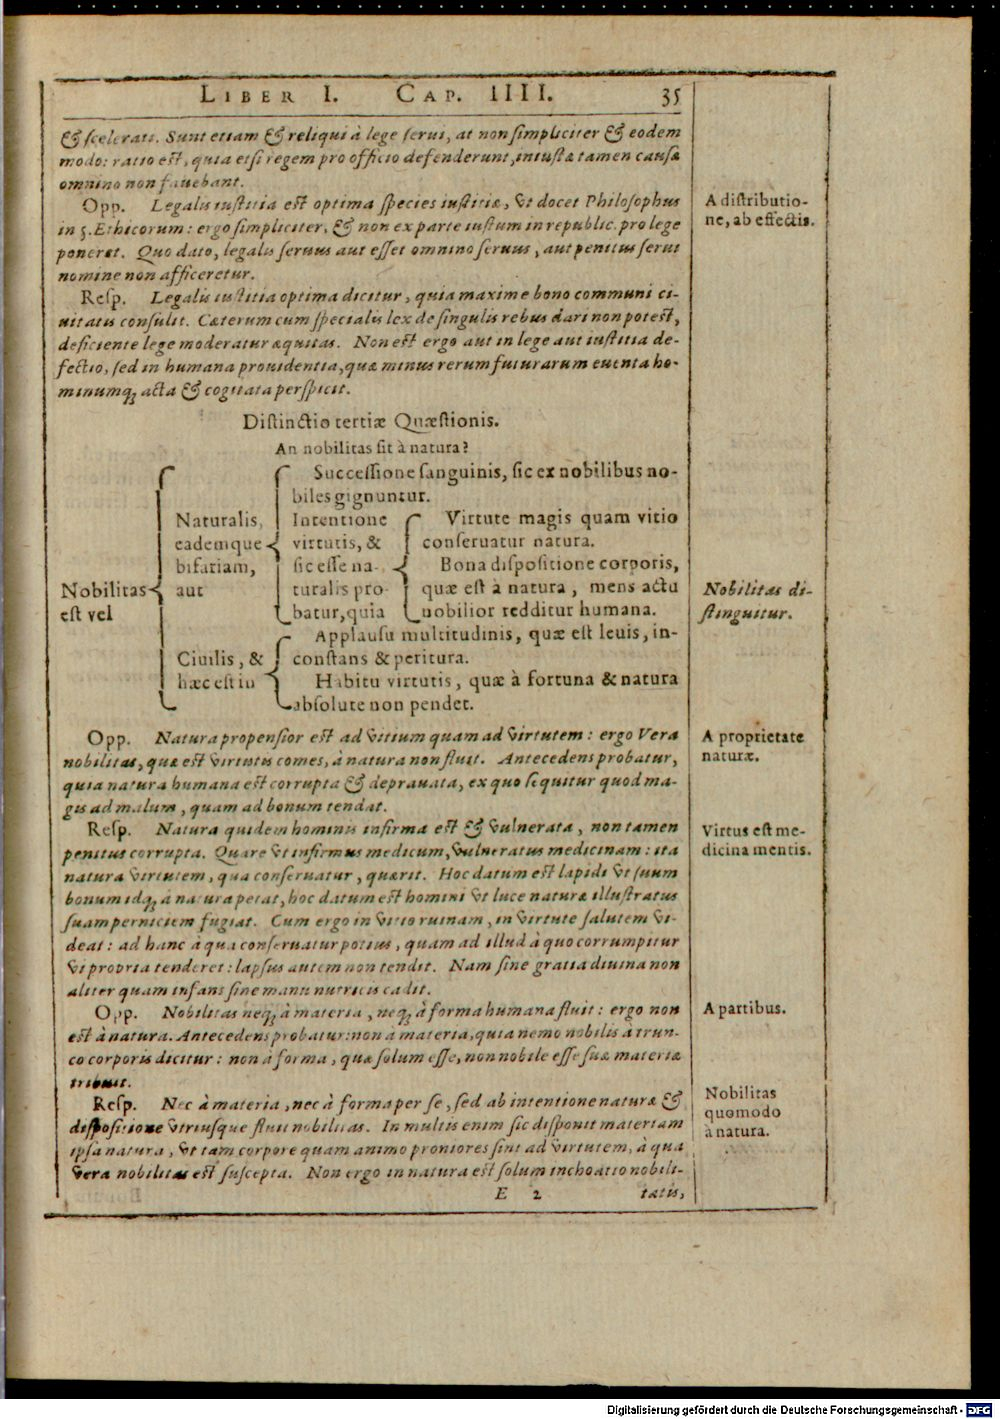 LIBER I. CAP. IIII. 35
& ſcelerati. Sunt etiam & reliqui à lege ſerui, at non ſimpliciter & eodem
modo: ratio eſt, quia etſi regem pro officio defenderunt, iniuſtæ tamen cauſæ
omnino non fauebant.
Opp. Legalis iuſtitia eſt optima ſpecies iuſtitiæ, vt docet Philoſophus
in 5. Ethicorum: ergo ſimpliciter, & non ex parte iuſtum in republic. pro lege
poneret. Quo dato, legalis ſeruus aut eſſet omnino ſeruus, aut penitus ſerui
nomine non afficeretur.
A diſtributio-
ne, ab effectis.
Reſp. Legalis iuſtitia optima dicitur, quia maxime bono communi ci-
uitatis conſulit. Cæterum cum ſpecialis lex de ſingulis rebus dari non poteſt,
deficiente lege moderatur æquitas. Non eſt ergo aut in lege aut iuſtitia de-
fectio, ſed in humana prouidentia, quæ minus rerum futurarum euenta ho-
minumq; acta & cogitata perſpicit.
Diſtinctio tertiæ Quæſtionis.
An nobilitas ſit à natura?
Nobilitas
eſt vel
Naturalis,
eademque
bifariam,
aut
Succeſſione ſanguinis, ſic ex nobilibus no-
biles gignuntur.
Intentione
virtutis, &
ſic eſſe na-
turalis pro-
batur, quia
Virtute magis quam vitio
conſeruatur natura.
Bona diſpoſitione corporis,
quæ eſt à natura, mens actu
nobilior redditur humana.
Ciuilis, &
hæc eſt in
Applauſu multitudinis, quæ eſt leuis, in-
conſtans & peritura.
Habitu virtutis, quæ à fortuna & natura
abſolute non pendet.
Nobilitas di-
ſtinguitur.
Opp. Natura propenſior eſt ad vitium quam ad virtutem: ergo Vera
nobilitas, quæ eſt virtutis comes, à natura non fluit. Antecedens probatur,
quia natura humana eſt corrupta & deprauata, ex quo ſequitur quod ma-
gis ad malum, quam ad bonum tendat.
A proprietate
naturæ.
Reſp. Natura quidem hominis infirma eſt & vulnerata, non tamen
penitus corrupta. Quare vt infirmus medicum, vulneratus medicinam: ita
natura virtutem, qua conſeruatur, quærit. Hoc datum eſt lapidi vt ſuum
bonum idq; à natura petat, hoc datum eſt homini vt luce naturæ illuſtratus
ſuam perniciem fugiat. Cum ergo in vitio ruinam, in virtute ſalutem vi-
deat: ad hanc à qua conſeruatur potius, quam ad illud à quo corrumpitur
vt propria tenderet: lapſus autem non tendit. Nam ſine gratia diuina non
aliter quam infans ſine manu nutricis cadit.
Virtus eſt me-
dicina mentis.
Opp. Nobilitas neq; à materia, neq; à forma humana fluit: ergo non
eſt à natura. Antecedens probatur: non à materia, quia nemo nobilis à trun-
co corporis dicitur: non à forma, quæ ſolum eſſe, non nobile eſſe ſuæ materiæ
tribuit.
A partibus.
Reſp. Nec à materia, nec à forma per ſe, ſed ab intentione naturæ &
diſpoſitione vtriuſque fluit nobilitas. In multis enim ſic diſponit materiam
ipſa natura, vt tam corpore quam animo proniores ſint ad virtutem, à qua
vera nobilitas eſt ſuſcepta. Non ergo in natura eſt ſolum inchoatio nobili-
Nobilitas
quomodo
à natura.
E 2 tatis,
Digitalisierung gefördert durch die Deutsche Forschungsgemeinschaft - DFG